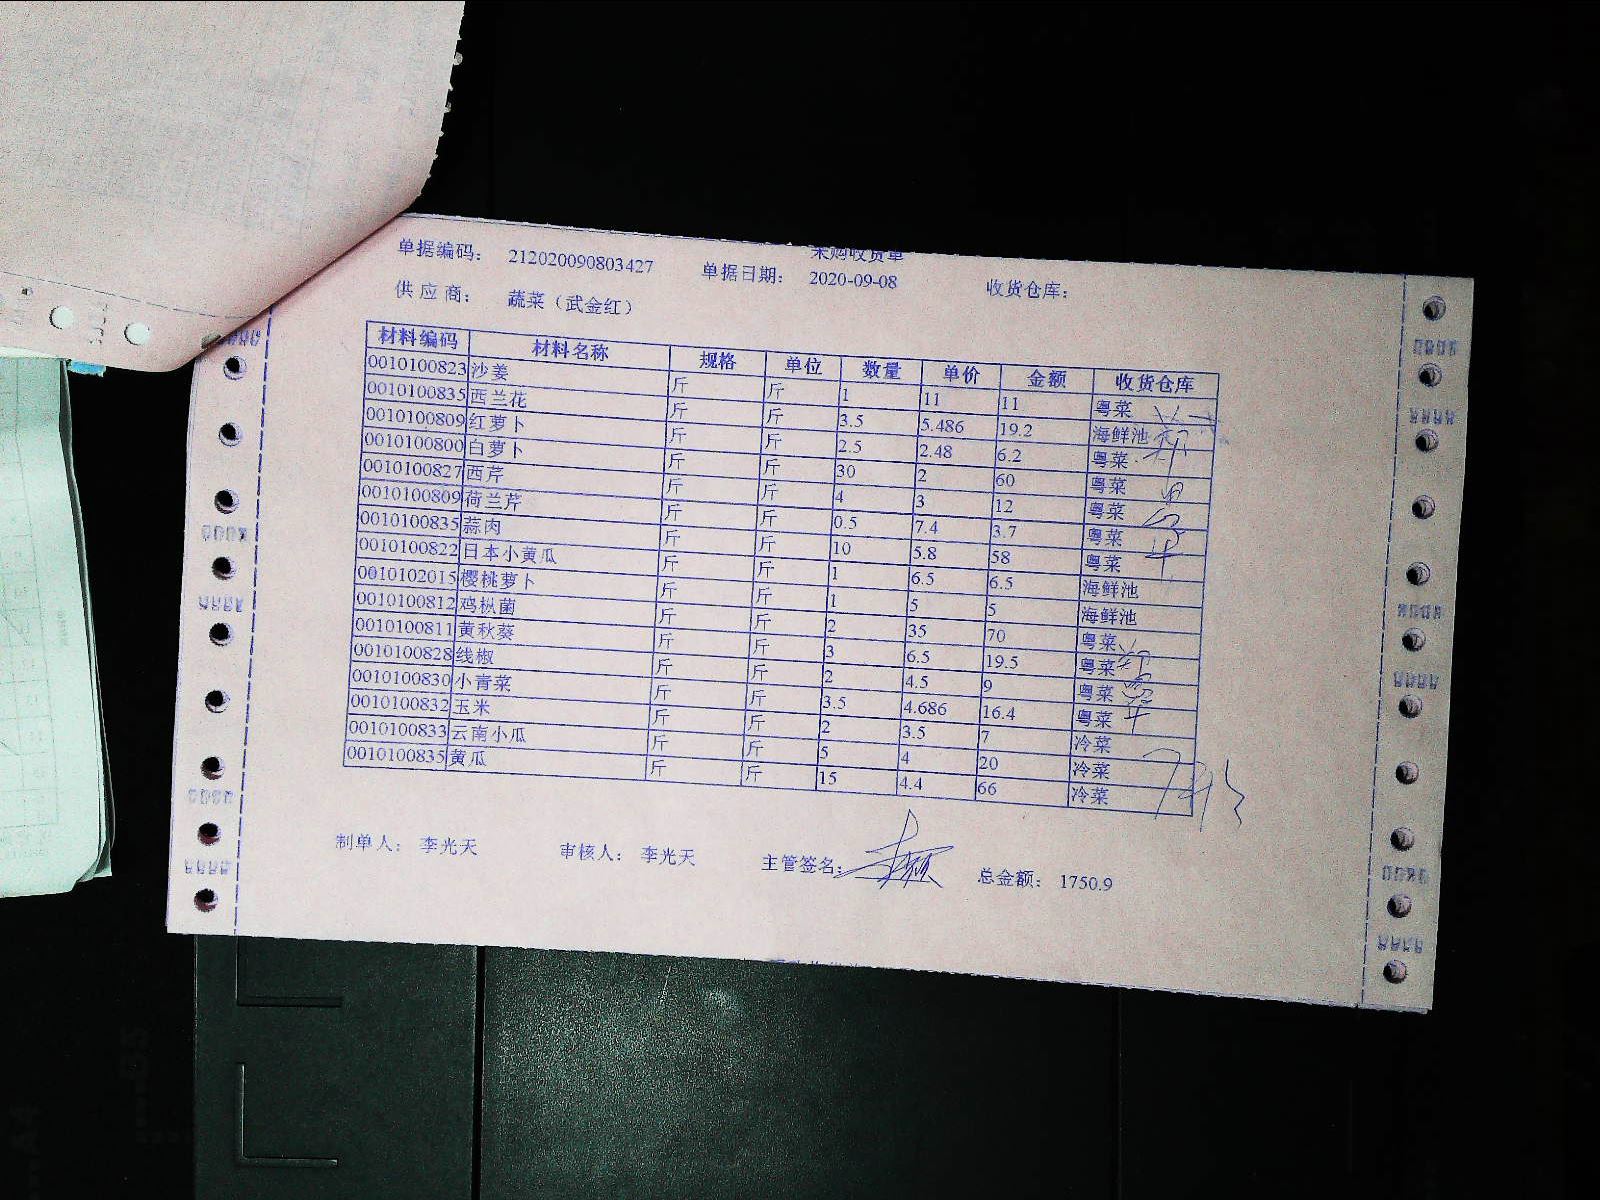 采购收货单
单据编码： 212020090803427 单据日期： 2020-09-08 收货仓库：
供 应 商： 蔬菜（武金红）
材料编码 材料名称 规格 单位 数量 单价 金额 收货仓库
0010100823 沙姜 斤 斤 1 11 11 粤菜
0010100835 西兰花 斤 斤 3.5 5.486 19.2 海鲜池
0010100809 红萝卜 斤 斤 2.5 2.48 6.2 粤菜
0010100800 白萝卜 斤 斤 30 2 60 粤菜
0010100827 西芹 斤 斤 4 3 12 粤菜
0010100809 荷兰芹 斤 斤 0.5 7.4 3.7 粤菜
0010100835 蒜肉 斤 斤 10 5.8 58 粤菜
0010100822 日本小黄瓜 斤 斤 1 6.5 6.5 海鲜池
0010102015 樱桃萝卜 斤 斤 1 5 5 海鲜池
0010100812 鸡枞菌 斤 斤 2 35 70 粤菜
0010100811 黄秋葵 斤 斤 3 6.5 19.5 粤菜
0010100828 线椒 斤 斤 2 4.5 9 粤菜
0010100830 小青菜 斤 斤 3.5 4.686 16.4 粤菜
0010100832 玉米 斤 斤 2 3.5 7 冷菜
0010100833 云南小瓜 斤 斤 5 4 20 冷菜
0010100835 黄瓜 斤 斤 15 4.4 66 冷菜
制单人： 李光天 审核人： 李光天 主管签名： 总金额： 1750.9